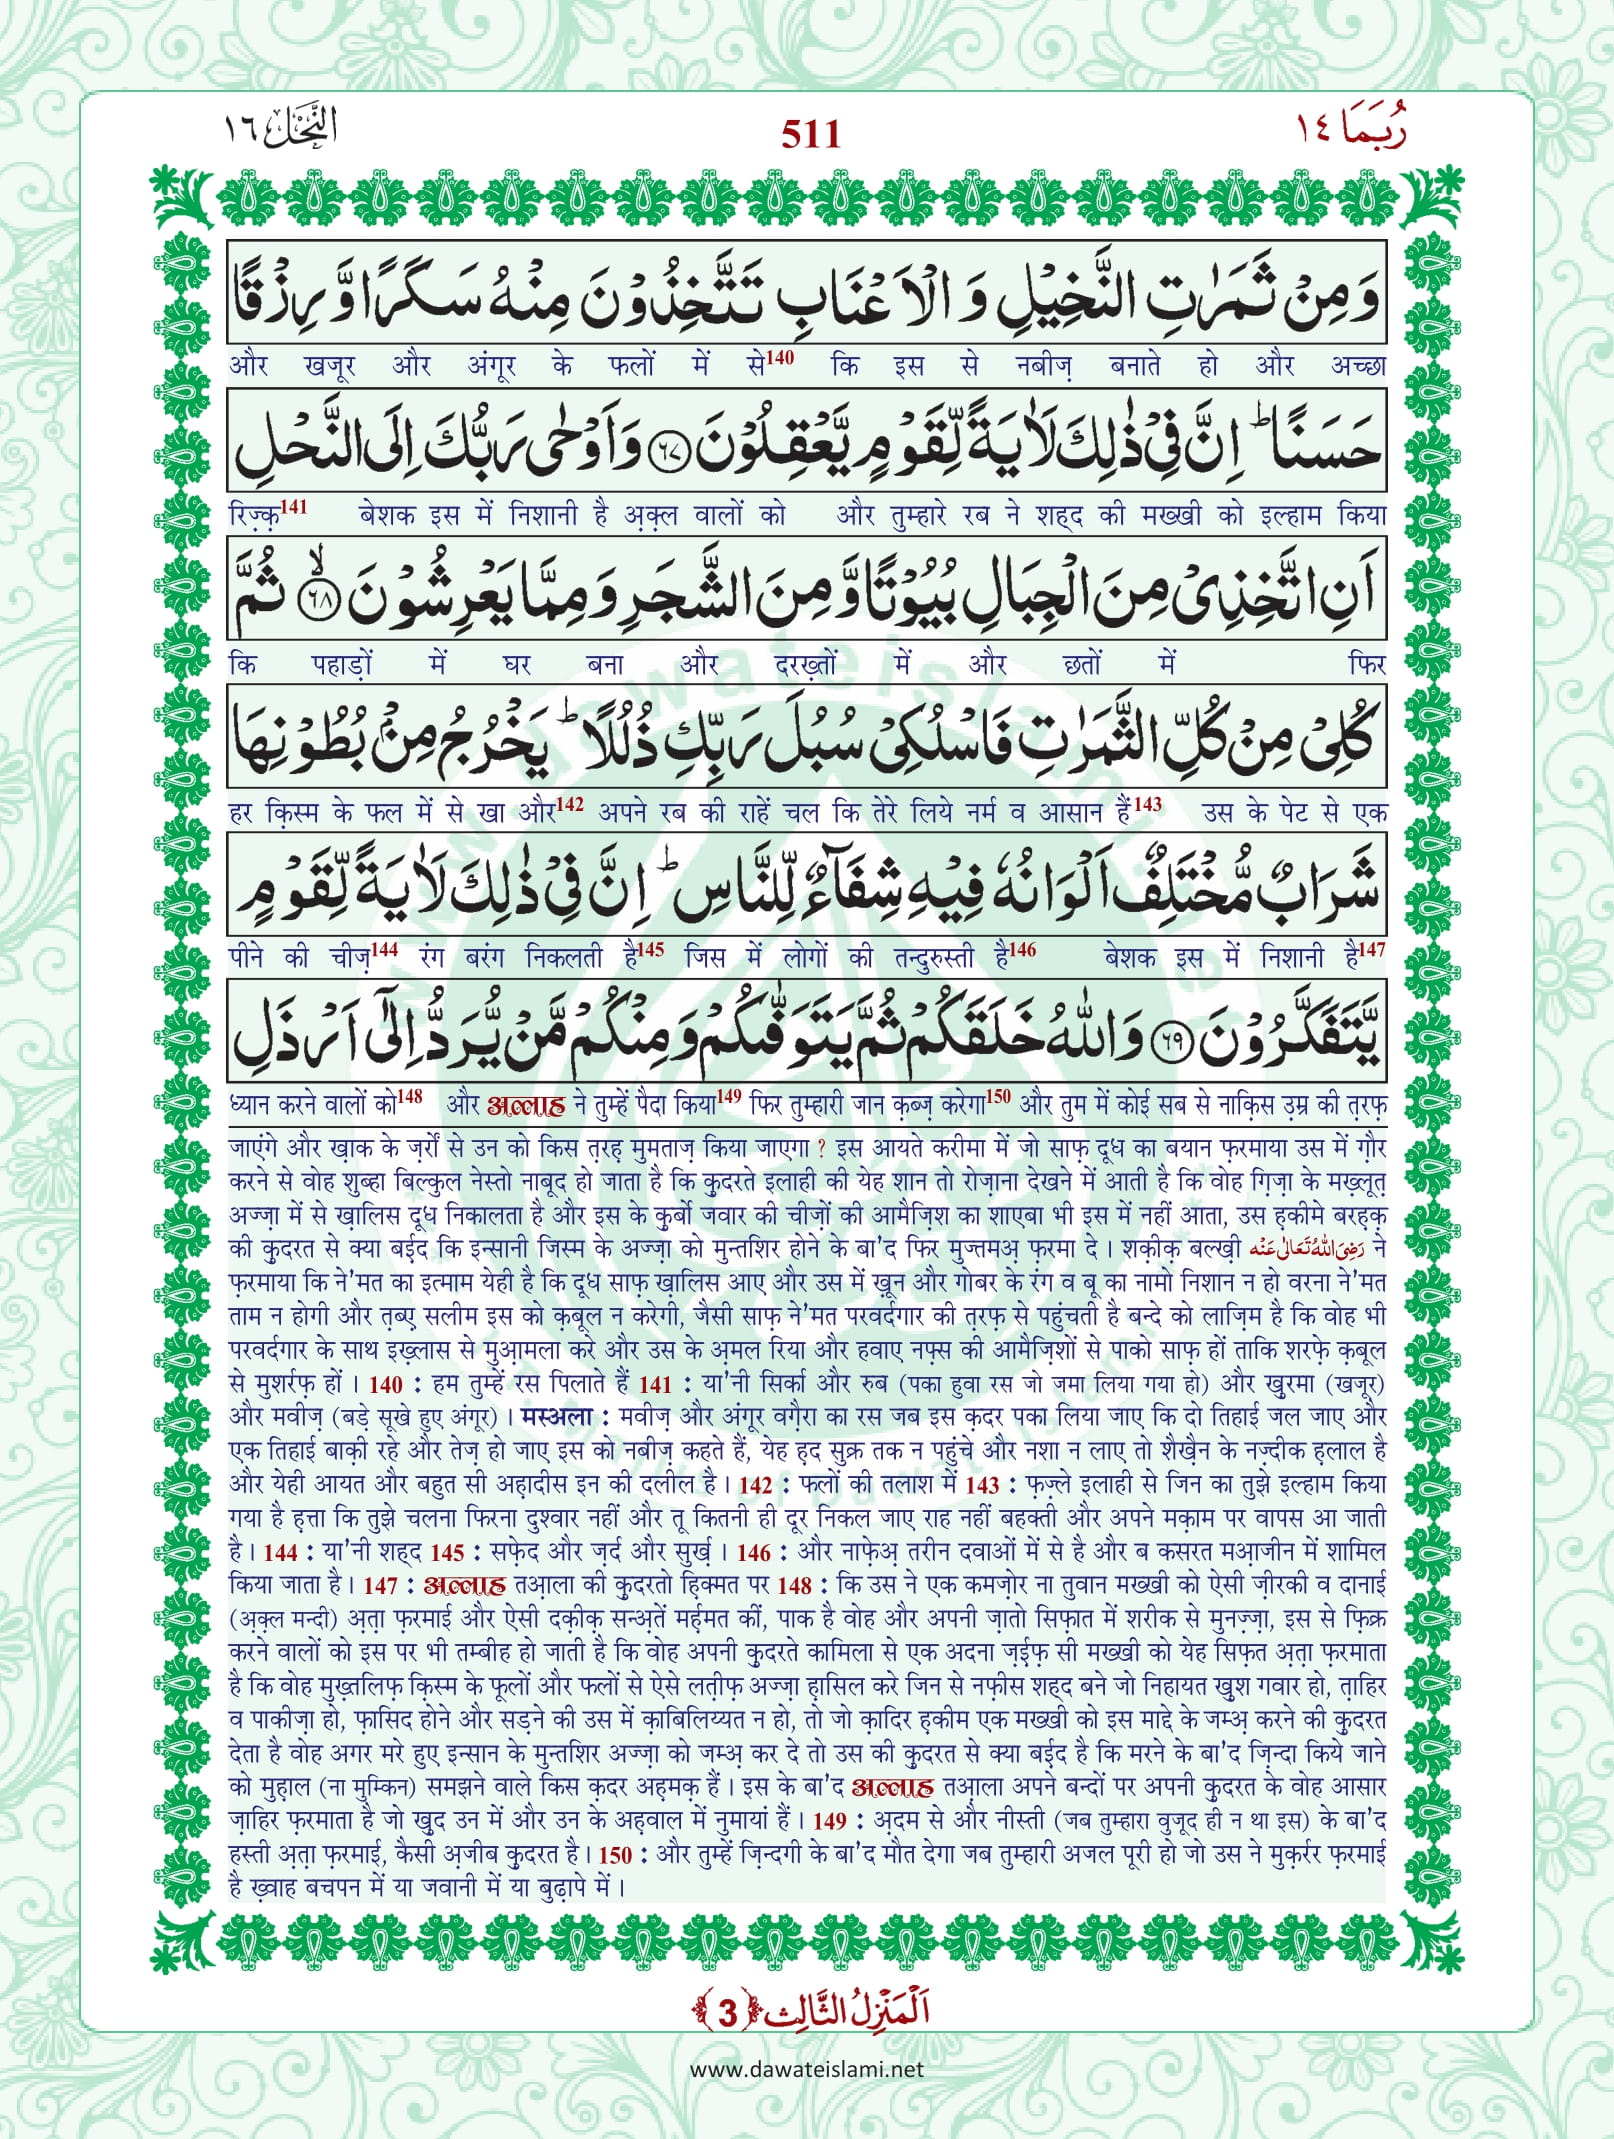 النَّحْل ١٦
511
رُبَمَا ١٤
وَمِنْ ثَمَرٰتِ النَّخِیْلِ وَ الْاَعْنَابِ تَتَّخِذُوْنَ مِنْهُ سَكَرًا وَّ رِزْقًا
और खजूर और अंगूर के फलों में से140 कि इस से नबीज़ बनाते हो और अच्छा
حَسَنًاؕ اِنَّ فِیْ ذٰلِكَ لَاٰیَةً لِّقَوْمٍ یَّعْقِلُوْنَ ﴿۶۷﴾ وَ اَوْحٰى رَبُّكَ اِلَى النَّحْلِ
रिज़्क़141 बेशक इस में निशानी है अ़क़्ल वालों को और तुम्हारे रब ने शह्द की मख्खी को इल्हाम किया
اَنِ اتَّخِذِیْ مِنَ الْجِبَالِ بُیُوْتًا وَّ مِنَ الشَّجَرِ وَ مِمَّا یَعْرِشُوْنَۙ ﴿۶۸﴾ ثُمَّ
कि पहाड़ों में घर बना और दरख़्तों में और छतों में फिर
كُلِیْ مِنْ كُلِّ الثَّمَرٰتِ فَاسْلُكِیْ سُبُلَ رَبِّكِ ذُلُلًاؕ یَخْرُ جُ مِنْۢ بُطُوْنِهَا
हर क़िस्म के फल में से खा और142 अपने रब की राहें चल कि तेरे लिये नर्म व आसान हैं143 उस के पेट से एक
شَرَابٌ مُّخْتَلِفٌ اَلْوَانُهٗ فِیْهِ شِفَآءٌ لِّلنَّاسِؕ اِنَّ فِیْ ذٰلِكَ لَاٰیَةً لِّقَوْمٍ
पीने की चीज़144 रंग बरंग निकलती है145 जिस में लोगों की तन्दुरुस्ती है146 बेशक इस में निशानी है147
یَّتَفَكَّرُوْنَ ﴿۶۹﴾ وَ اللّٰهُ خَلَقَكُمْ ثُمَّ یَتَوَفّٰىكُمْ وَ مِنْكُمْ مَّنْ یُّرَدُّ اِلٰۤى اَرْذَلِ
ध्यान करने वालों को148 और अल्लाह ने तुम्हें पैदा किया149 फिर तुम्हारी जान क़ब्ज़ करेगा150 और तुम में कोई सब से नाक़िस उ़म्र की त़रफ़
जाएंगे और ख़ाक के ज़र्रों से उन को किस त़रह़ मुमताज़ किया जाएगा ? इस आयते करीमा में जो साफ़ दूध का बयान फ़रमाया उस में ग़ौर
करने से वोह शुब्हा बिल्कुल नेस्तो नाबूद हो जाता है कि क़ुदरते इलाही की येह शान तो रोज़ाना देखने में आती है कि वोह ग़िज़ा के मख़्लूत़
अज्ज़ा में से ख़ालिस दूध निकालता है और इस के क़ुर्बो जवार की चीज़ों की आमैज़िश का शाएबा भी इस में नहीं आता, उस ह़कीमे बरह़क़
की क़ुदरत से क्या बई़द कि इन्सानी जिस्म के अज्ज़ा को मुन्तशिर होने के बा'द फिर मुज्तमअ़ फ़रमा दे । शक़ीक़ बल्ख़ी رَضِیَ اللّٰهُ تَعَالٰی عَنْه ने
फ़रमाया कि ने'मत का इत्माम येही है कि दूध साफ़ ख़ालिस आए और उस में ख़ून और गोबर के रंग व बू का नामो निशान न हो वरना ने'मत
ताम न होगी और त़ब्ए़ सलीम इस को क़बूल न करेगी, जैसी साफ़ ने'मत परवर्दगार की त़रफ़ से पहुंचती है बन्दे को लाज़िम है कि वोह भी
परवर्दगार के साथ इख़्लास से मुआ़मला करे और उस के अ़मल रिया और हवाए नफ़्स की आमैज़िशों से पाको साफ़ हों ताकि शरफ़े क़बूल
से मुशर्रफ़ हों । 140 : हम तुम्हें रस पिलाते हैं 141 : या'नी सिर्का और रुब (पका हुवा रस जो जमा लिया गया हो) और ख़ुरमा (खजूर)
और मवीज़ (बड़े सूखे हुए अंगूर) । मस्अला : मवीज़ और अंगूर वग़ैरा का रस जब इस क़दर पका लिया जाए कि दो तिहाई जल जाए और
एक तिहाई बाक़ी रहे और तेज़ हो जाए इस को नबीज़ कहते हैं, येह ह़द सुक्र तक न पहुंचे और नशा न लाए तो शैख़ैन के नज़्दीक ह़लाल है
और येही आयत और बहुत सी अह़ादीस इन की दलील है । 142 : फलों की तलाश में 143 : फ़ज़्ले इलाही से जिन का तुझे इल्हाम किया
गया है ह़त्ता कि तुझे चलना फिरना दुश्वार नहीं और तू कितनी ही दूर निकल जाए राह नहीं बहक्ती और अपने मक़ाम पर वापस आ जाती
है । 144 : या'नी शह्द 145 : सफ़ेद और ज़र्द और सुर्ख़ । 146 : और नाफ़ेअ़ तरीन दवाओं में से है और ब कसरत मआ़जीन में शामिल
किया जाता है । 147 : अल्लाह तआ़ला की क़ुदरतो ह़िक्मत पर 148 : कि उस ने एक कमज़ोर ना तुवान मख्खी को ऐसी ज़ीरकी व दानाई
(अ़क़्ल मन्दी) अ़त़ा फ़रमाई और ऐसी दक़ीक़ सन्अ़तें मर्ह़मत कीं, पाक है वोह और अपनी ज़ातो सिफ़ात में शरीक से मुनज़्ज़ा, इस से फ़िक्र
करने वालों को इस पर भी तम्बीह हो जाती है कि वोह अपनी क़ुदरते कामिला से एक अदना ज़ई़फ़ सी मख्खी को येह सिफ़त अ़त़ा फ़रमाता
है कि वोह मुख़्तलिफ़ क़िस्म के फूलों और फलों से ऐसे लत़ीफ़ अज्ज़ा ह़ासिल करे जिन से नफ़ीस शह्द बने जो निहायत ख़ुश गवार हो, त़ाहिर
व पाकीज़ा हो, फ़ासिद होने और सड़ने की उस में क़ाबिलिय्यत न हो, तो जो क़ादिर ह़कीम एक मख्खी को इस माद्दे के जम्अ़ करने की क़ुदरत
देता है वोह अगर मरे हुए इन्सान के मुन्तशिर अज्ज़ा को जम्अ़ कर दे तो उस की क़ुदरत से क्या बई़द है कि मरने के बा'द ज़िन्दा किये जाने
को मुह़ाल (ना मुम्किन) समझने वाले किस क़दर अह़मक़ हैं । इस के बा'द अल्लाह तआ़ला अपने बन्दों पर अपनी क़ुदरत के वोह आसार
ज़ाहिर फ़रमाता है जो ख़ुद उन में और उन के अह़वाल में नुमायां हैं । 149 : अ़दम से और नीस्ती (जब तुम्हारा वुजूद ही न था इस) के बा'द
हस्ती अ़त़ा फ़रमाई, कैसी अ़जीब क़ुदरत है । 150 : और तुम्हें ज़िन्दगी के बा'द मौत देगा जब तुम्हारी अजल पूरी हो जो उस ने मुक़र्रर फ़रमाई
है ख़्वाह बचपन में या जवानी में या बुढ़ापे में ।
اَلْمَنْزِلُ الثَّالِث ﴿3﴾
www.dawateislami.net